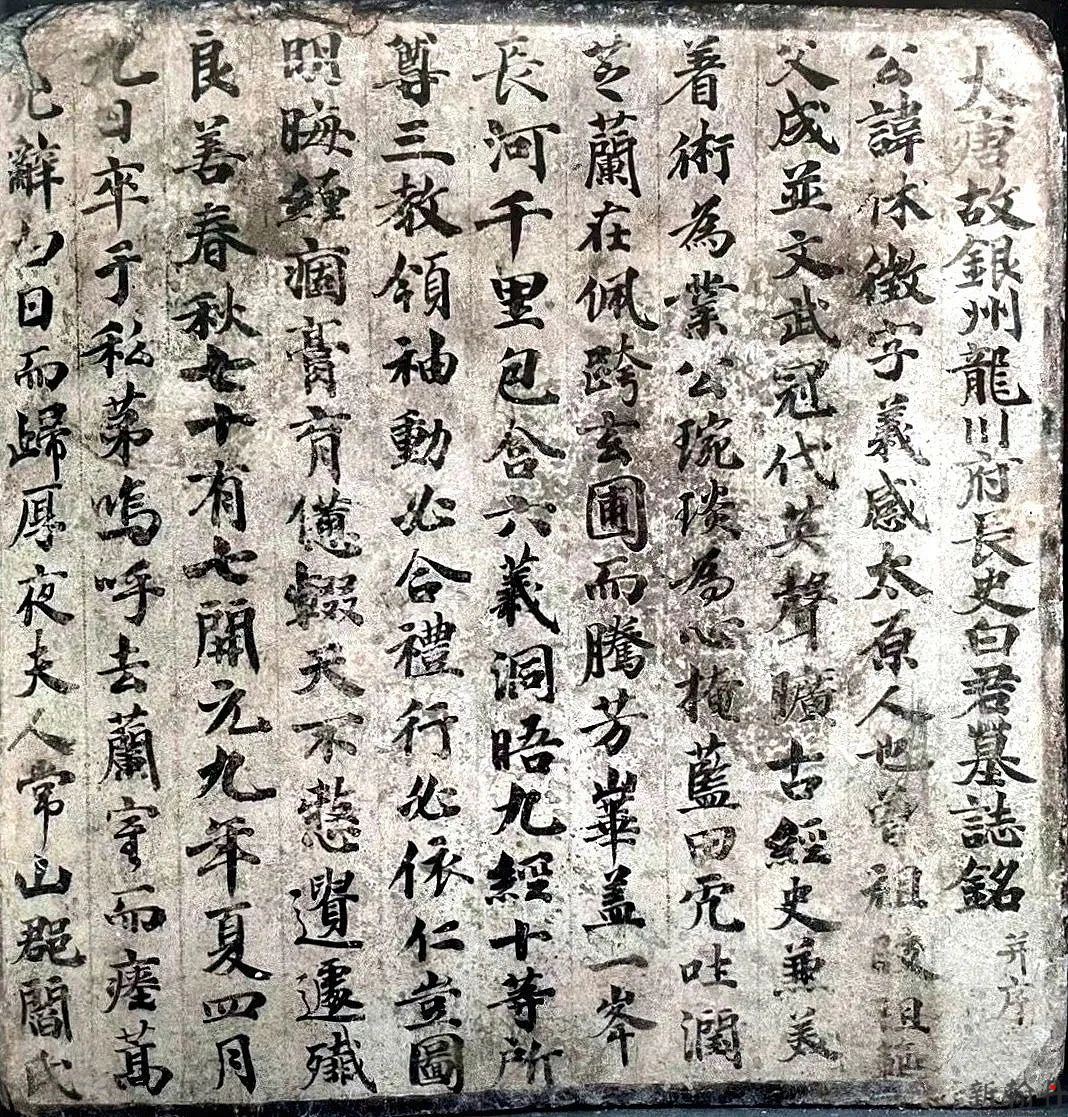 大唐故銀州龍川府長史白君墓誌銘 并序
公諱休徵字義感太原人也曾祖 祖
父成並文武冠代英聲曠古經史兼美
着術為業公琬琰為心掩藍田而吐潤
芝蘭在佩跨玄圃而騰芳崋盖一岑
長河千里包含六義洞晤九經十等所
尊三教領袖動必合禮行必依仁豈圖
明晦纏痼膏肓僊輟天不憗遺遽殲
良善春秋七十有七開元九年夏四月
九日卒于私苐嗚呼去蘭室而瘞蒿
辭白日而歸厚夜夫人常山郡閻氏